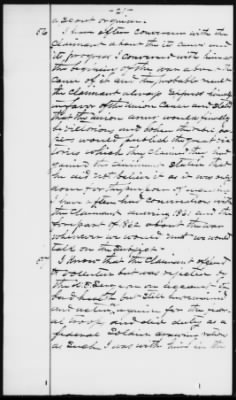 -2-
a secret organism.
56 I have often conversed with the
claimant about the its cause and
its progress. I conversed with him
the beginning of the war about the
cause of it and the probable result
the claimant always express himself
in favor of the union cause and stated
that the union army would finally
be victorious, and when the rebel
would publish the great
which claimed they had
gained the claimant stated that
he did not believe it as it was only
done for the purpose of
I have often had conversation with
the claimant during 1861 and the
forepart of 1862 about the war
whenever we would meet we would
talk on the subject.
57 I know that the claimant offered
to volunteer but was rejected by
the U.S. Surgeon on account of
bad health but still he remained
and active, for the
troop and did duty as a
federal soldier during
as such. I was with him in the